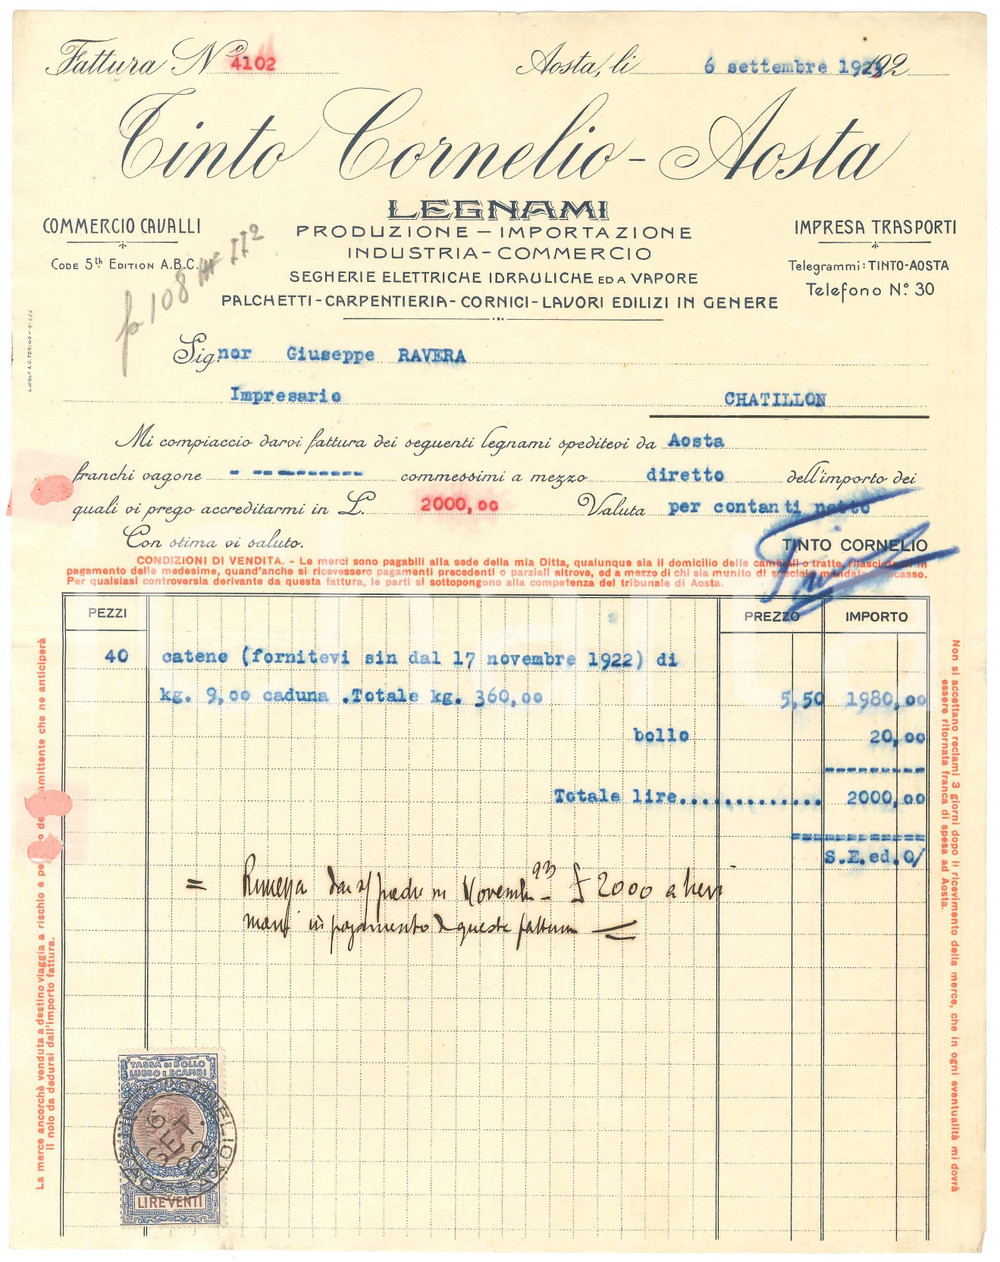 Fattura N° 4102
Aosta, li 6 settembre 1923 192
Tinto Cornelio - Aosta
LEGNAMI
COMMERCIO CAVALLI
CODE 5th EDITION A.B.C.
PRODUZIONE - IMPORTAZIONE
INDUSTRIA - COMMERCIO
SEGHERIE ELETTRICHE IDRAULICHE ED A VAPORE
PALCHETTI - CARPENTIERIA - CORNICI - LAVORI EDILIZI IN GENERE
IMPRESA TRASPORTI
Telegrammi: TINTO-AOSTA
Telefono N° 30
108
Signor Giuseppe RAVERA
Impresario CHATILLON
Mi compiaccio darvi fattura dei seguenti legnami speditevi da Aosta
franchi vagone - ---------- commessimi a mezzo diretto dell'importo dei
quali vi prego accreditarmi in L. 2000,00 Valuta per contanti netto
Con stima vi saluto.
TINTO CORNELIO
CONDIZIONI DI VENDITA. - Le merci sono pagabili alla sede della mia Ditta, qualunque sia il domicilio delle cambiali o tratte, rilasciate in
pagamento delle medesime, quand'anche si ricevessero pagamenti precedenti o parziali altrove, ed a mezzo di chi sia munito di speciale mandato d'incasso.
Per qualsiasi controversia derivante da questa fattura, le parti si sottopongono alla competenza del tribunale di Aosta.
PEZZI PREZZO IMPORTO
40 catene (fornitevi sin dal 17 novembre 1922) di
kg. 9,00 caduna .Totale kg. 360,00 5,50 1980,00
bollo 20,00
---------
Totale lire............. 2000,00
============
S.E.ed.O/
= Rimessa da £ 2000 a
mani in pagamento di questa fattura
La merce ancorchè venduta a destino viaggia a rischio e mittente che ne anticiperà
il nolo da dedursi dall'importo fattura.
Non si accettano reclami 3 giorni dopo il ricevimento della merce, che in ogni eventualità mi dovrà
essere ritornata franca di spesa ad Aosta.
TASSA DI BOLLO
LUSSO E SCAMBI
6 SET 23
LIRE VENTI